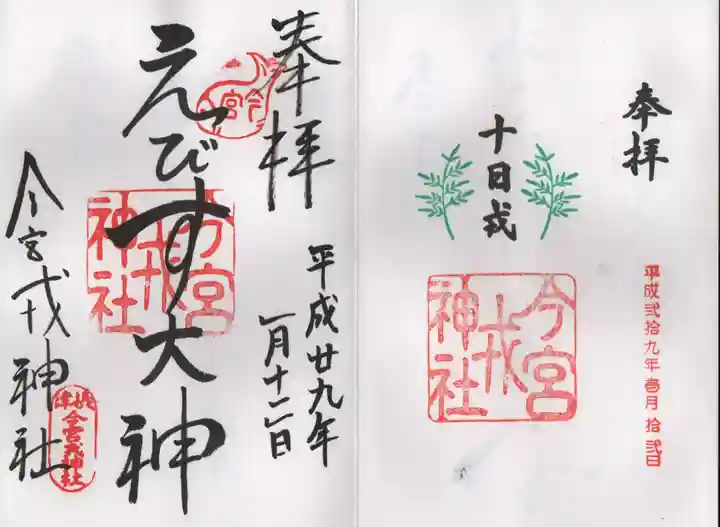 奉拝
十日戎
今宮
戎
神社
平成弐拾九年壱月拾弐日
奉拝
平成廿九年
一月十二日
今宮
えびす大神
今宮
戎
神社
今宮戎神社
今宮戎神社